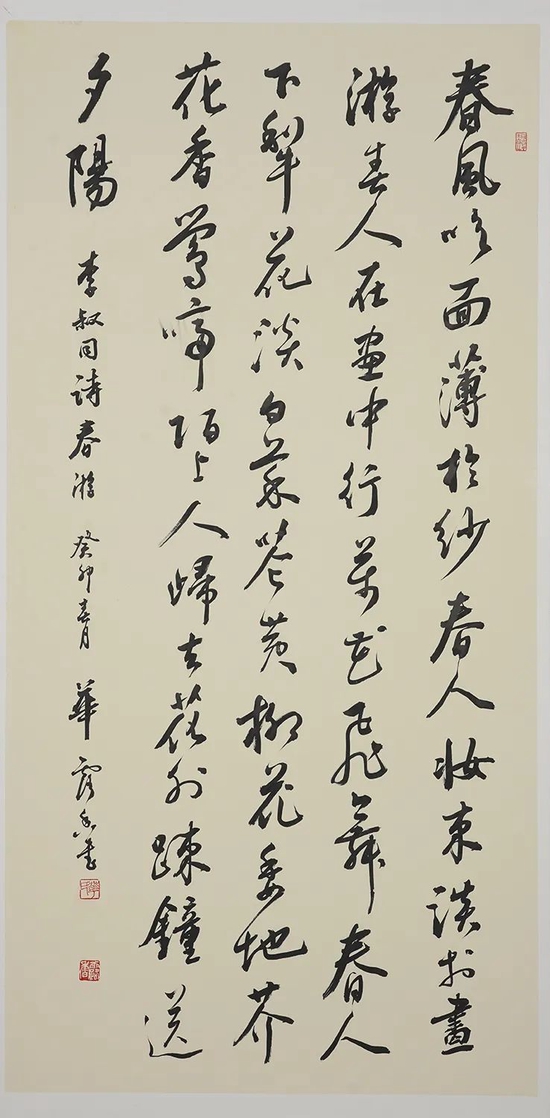 春風吹面薄於紗春人妝束談於畫
游春人在畫中行萬花飛舞春人
下犂花淡白菜花黃柳花委地芥
花香鶯啼陌上人歸去花外踈鐘送
夕陽
李叔同詩春游 癸卯春月 華香書